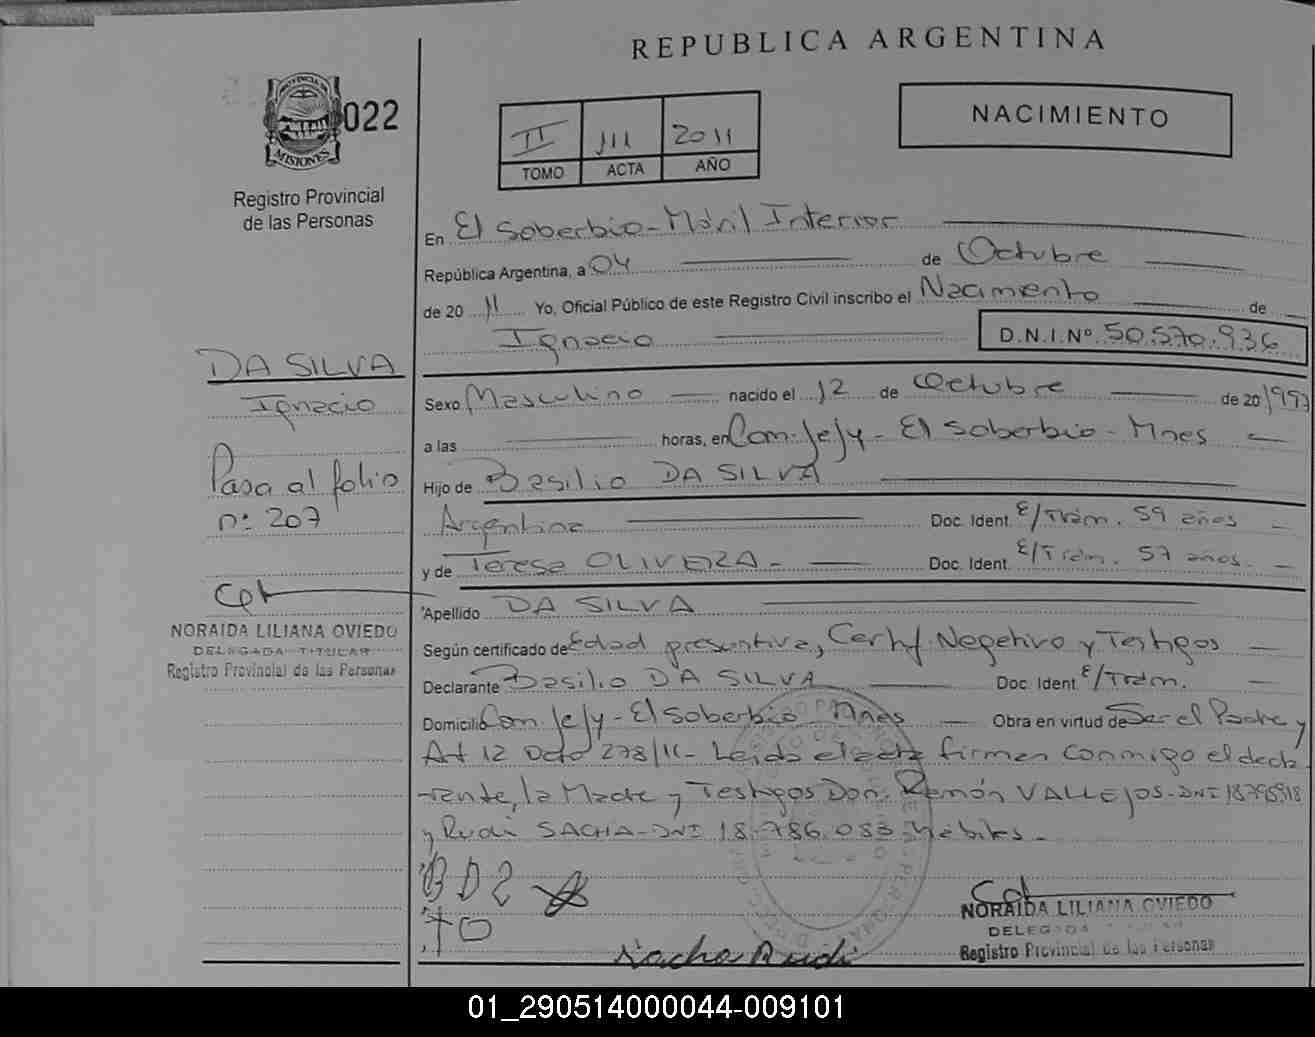 REPUBLICA ARGENTINA
PROVINCIA DE
MISIONES
022
Registro Provincial
de las Personas
II 111 2011
TOMO ACTA AÑO
NACIMIENTO
En El Soberbio - Móvil Interior
República Argentina, a 04 de Octubre
de 20 11 Yo, Oficial Público de este Registro Civil inscribo el Nacimiento de
Ignacio D.N.I.Nº 50.570.936
DA SILVA
Ignacio
Pasa al folio
nº 207
NORAIDA LILIANA OVIEDO
DELEGADA TITULAR
Registro Provincial de las Personas
Sexo Masculino nacido el 12 de Octubre de 20 1997
a las horas, en Com. Jejy - El Soberbio - Mnes
Hijo de Basilio DA SILVA
Argentina Doc. Ident. E/Trám. 59 años
y de Teresa OLIVERA - Doc. Ident. E/Trám. 57 años.
Apellido DA SILVA
Según certificado de Edad presuntiva, Certf. Negativo y Testigos
Declarante Basilio DA SILVA Doc. Ident E/Trám.
Domicilio Com. Jejy - El Soberbio Mnes Obra en virtud de Ser el Padre y
Art 12 Dcto 278/11 - Leida el acta firman conmigo el decla-
rante, la Madre y Testigos Don: Ramón VALLEJOS - DNI
y Rudi SACHA - DNI 18.786.083 hábiles.
NORAIDA LILIANA OVIEDO
DELEGADA
Registro Provincial de las Personas
01_290514000044-009101